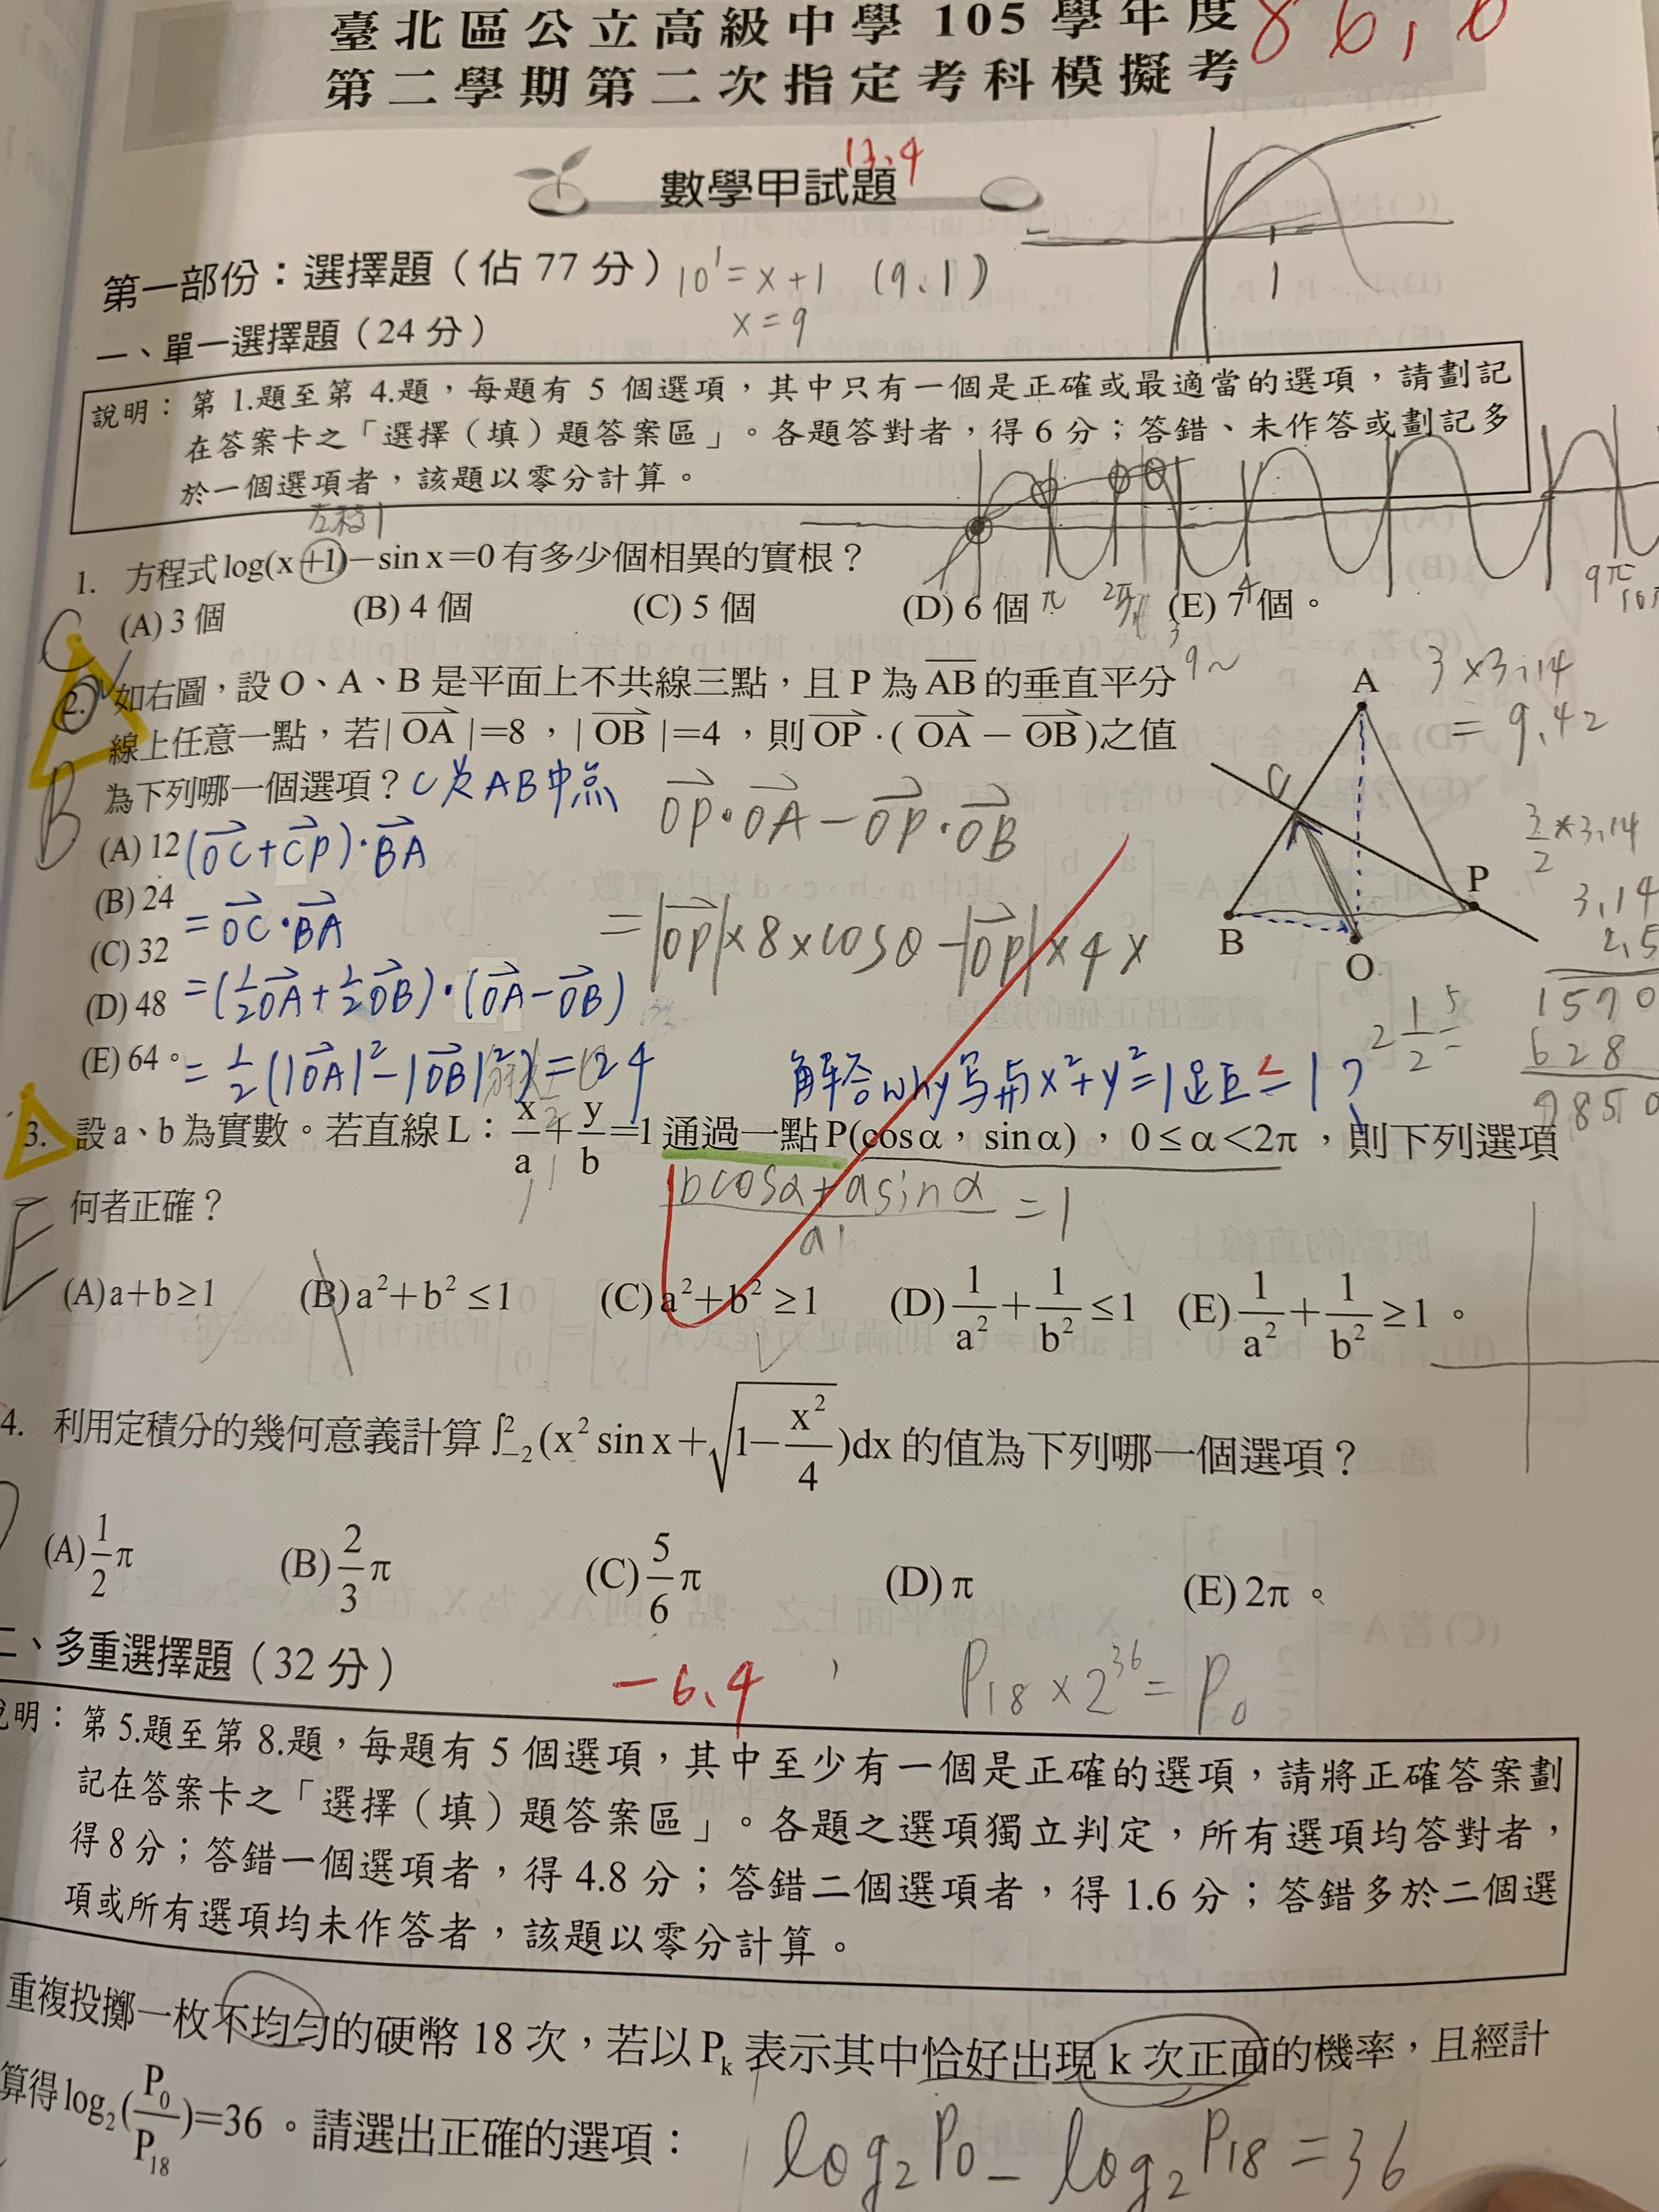 臺北區公立高級中學 105 學年度
86.6
第二學期第二次指定考科模擬考
13.4
數學甲試題
第一部份：選擇題（佔 77 分）
10¹=x+1 (9,1)
x=9
1
一、單一選擇題（24 分）
說明：第 1.題至第 4.題，每題有 5 個選項，其中只有一個是正確或最適當的選項，請劃記
在答案卡之「選擇（填）題答案區」。各題答對者，得 6 分；答錯、未作答或劃記多
於一個選項者，該題以零分計算。
左移1
1. 方程式 log(x+1)−sin x=0 有多少個相異的實根？
(A) 3 個 (B) 4 個 (C) 5 個 (D) 6 個 (E) 7 個。
π 2π 3 4 9π 10π
C
9~
2. 如右圖，設 O、A、B 是平面上不共線三點，且 P 為 AB 的垂直平分
線上任意一點，若| OA |=8，| OB |=4，則 OP·( OA − OB )之值
為下列哪一個選項？ C為AB中点
A
C
B
P
O
3×3.14
=9.42
B
(A) 12 (OC+CP)·BA
OP·OA−OP·OB
(B) 24
= OC·BA
=|OP|×8×cosθ−|OP|×4×
(C) 32
(D) 48 =(½OA+½OB)·(OA−OB)
(E) 64。 =½(|OA|²−|OB|²)=24
3/2×3.14
3.14
2.5
1570
628
7850
2 1/2=5
解答why写与x²+y²=1足巨≤1?
3. 設 a、b 為實數。若直線 L：x/a+y/b=1 通過一點 P(cosα，sinα)，0≤α<2π，則下列選項
何者正確？
bcosα+asinα =1
E
(A) a+b≥1 (B) a²+b²≤1 (C) a²+b²≥1 (D) 1/a²+1/b²≤1 (E) 1/a²+1/b²≥1。
4. 利用定積分的幾何意義計算 ∫₋₂²(x² sin x+√(1−x²/4))dx 的值為下列哪一個選項？
(A) 1/2 π (B) 2/3 π (C) 5/6 π (D) π (E) 2π。
二、多重選擇題（32 分）
−6.4
P₁₈×2³⁶=P₀
說明：第 5.題至第 8.題，每題有 5 個選項，其中至少有一個是正確的選項，請將正確答案劃
記在答案卡之「選擇（填）題答案區」。各題之選項獨立判定，所有選項均答對者，
得 8 分；答錯一個選項者，得 4.8 分；答錯二個選項者，得 1.6 分；答錯多於二個選
項或所有選項均未作答者，該題以零分計算。
重複投擲一枚不均勻的硬幣 18 次，若以 Pₖ 表示其中恰好出現 k 次正面的機率，且經計
算得 log₂(P₀/P₁₈)=36。請選出正確的選項：
log₂P₀−log₂P₁₈=36